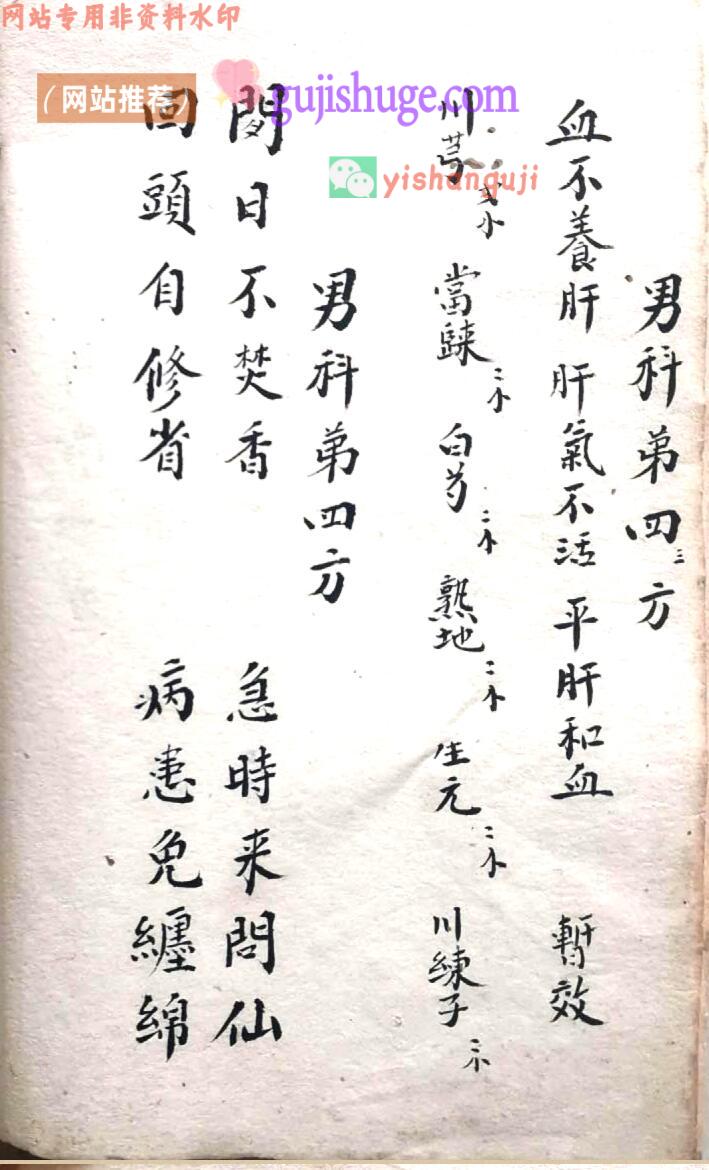 网站专用非资料水印
（网站推荐）
gujishuge.com
yishanguji
男科弟四三方
血不養肝 肝氣不活 平肝和血 暫效
川芎 當歸 二小 白芍 二小 熟地 二小 生元 二小 川練子 三小
男科弟四方
閒日不焚香 急時来問仙
回頭自修省 病患免纏綿